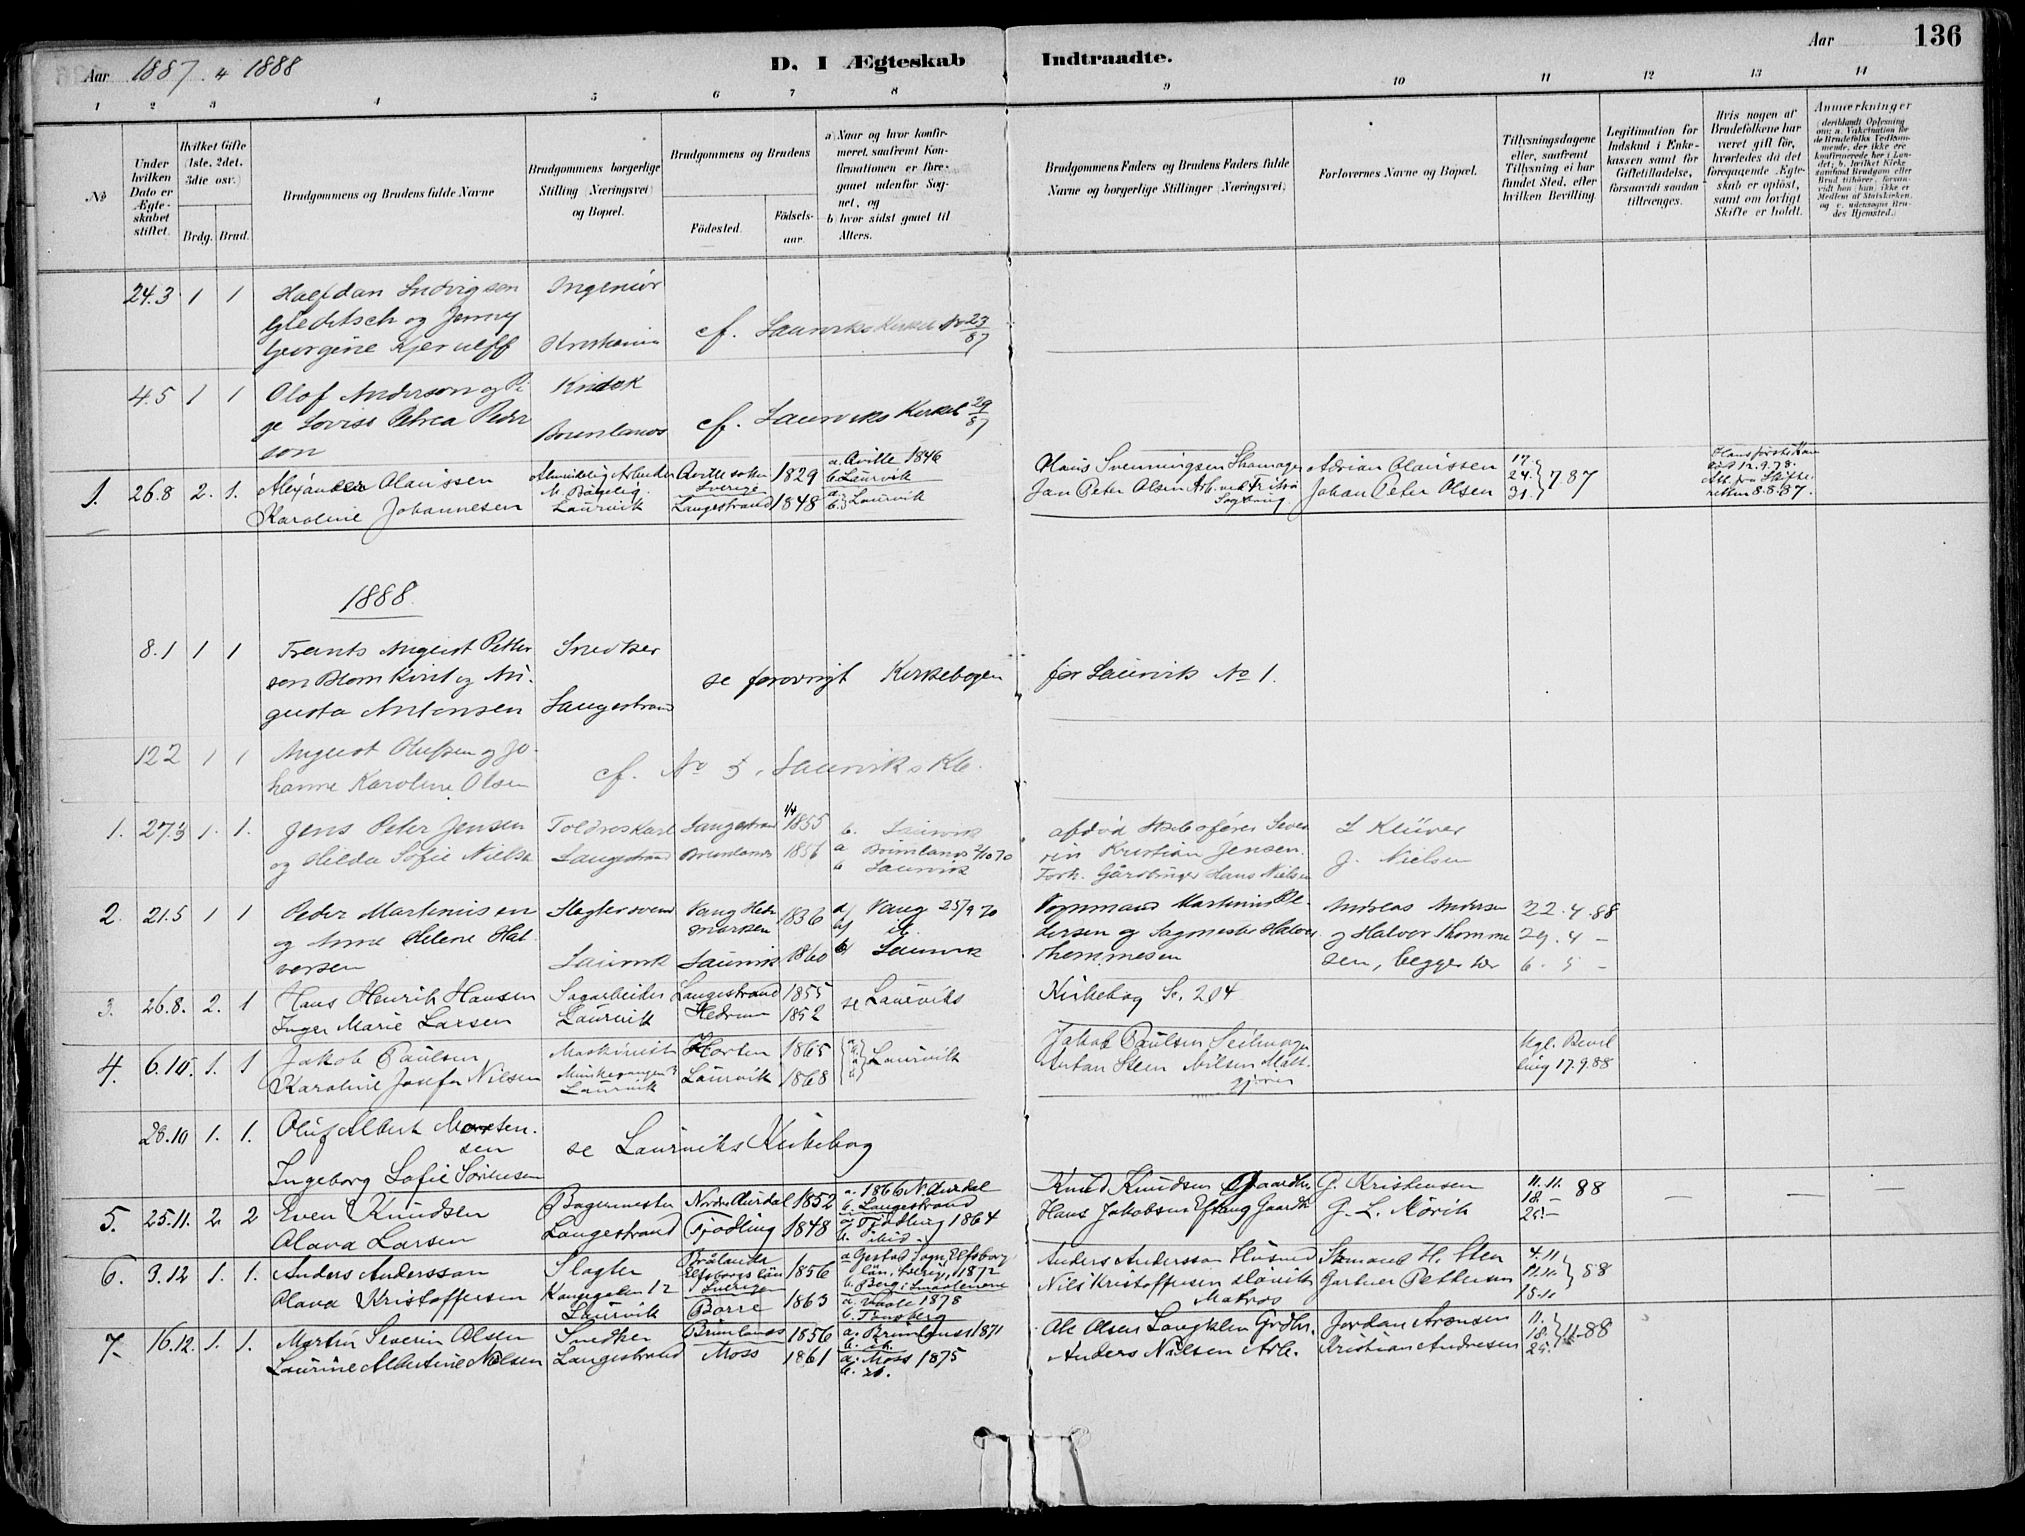 Aar 1887 & 1888
D. I Ægteskab Indtraadte.
Aar 136
1 2 3 4 5 6 7 8 9 10 11 12 13 14
No
Under hvilken Dato er Ægteskabet stiftet.
Hvilket Gifte (1ste, 2det, 3die osv.)
Brdg. Brud.
Brudgommens og Brudens fulde Navne
Brudgommens borgerlige Stilling (Næringsvei) og Bopæl.
Brudgommens og Brudens
Fødested.
Fødselsaar.
a) Naar og hvor konfirmeret, saafremt Konfirmationen er foregaaet udenfor Sognet, og
b) hvor sidst gaaet til Alters.
Brudgommens Faders og Brudens Faders fulde Navne og borgerlige Stillinger (Næringsvei)
Forlovernes Navne og Bopæl.
Tillysningsdagene eller, saafremt Tillysning ei har fundet Sted, efter hvilken Bevilling.
Legitimation for Indskud i Enkekassen samt for Giftetilladelse, forsaavidt saadan tiltrænges.
Hvis nogen af Brudefolkene har været gift før, hvorledes da det foregaaende Ægteskab er opløst, samt om lovligt Skifte er holdt.
Anmærkninger
24.3 1 1 Halfdan Ludvigsen Ingeniør
Gleditsch og Jenny
Georgine Kjerulff Kristiania cf. Laurviks Kirkeb. No 23/87
4.5 1 1 Olof Anderson og Pi-
ge Lovise Petrea Peder
son Brunlanes cf. Laurviks Kirkeb 29/87
1. 26.8 2. 1. Alexander Olaussen Almindelig Arbeider Sverige 1829 a. Qville 1846 b. Laurvik
Karoline Johannesen Laurvik Langestrand 1848 Laurvik
Olaus Svenningsen Adrian Olaussen 17. 24. 31. 7 87
Jan Peter Olsen Arb. ved Fritzø Johan Peter Olsen
12.9.78. 8.8.87.
1888.
8.1 1 1 Frants August Petter Snedker
son Blomkvist og Au-
gusta Antonsen Langestrand
se forøvrigt Kirkebogen for Laurvik No 1.
12 2 1 1 August Olufsen og Jo-
hanne Karoline Olsen cf. No 5, Laurviks Kb.
1. 27.3 1. 1. Jens Peter Jensen Toldroskarl Langestrand 1/4 1855 b. Laurvik
og Hilda Sofie Nielsen Langestrand Brunlanes 1856 a Brunlanes 2/10 70
b Laurvik
afdød Skibsfører Seve
rin Kristian Jensen.
Gårdbruger Hans Nielsen
L Klüver
J. Nielsen
2. 21.5 1 1 Peder Martinusen Slagtersvend Vang Hedemarken 1836 a) Vang 25/9 70
og Anne Helene Hal-
versen Laurvik Laurvik 1860 b) Laurvik
Vognmand Martinus Pe-
dersen og Sagmester Halvor
Thommesen
Andreas Andersen
og Halvor Thomme
sen, begge her
22.4.88
29.4 -
6.5 -
3. 26.8. 2. 1 Hans Henrik Hansen Sagarbeider Langestrand 1855
Inger Marie Larsen Laurvik Hedrum 1852
se Laurviks Kirkebog S. 204
4. 6.10. 1. 1 Jakob Paulsen Maskinist Horten 1865
Karoline Josefa Nielsen Laurvik Laurvik 1868 Laurvik
Jakob Paulsen Seilmager
Anton Steen Nilsen Malt-
gjører
Kgl. Bevil
ling 17.9.88
28.10 1. 1. Oluf Albert Morten-
sen
Ingeborg Sofie Sörensen
se Laurviks Kirkebog
5. 25.11. 2. 2 Even Knudsen Bagermester Nordre Aurdal 1852 a. 1866 N. Aurdal b. Langestrand
Olava Larsen Langestrand Tjodling 1848 a. Tjodling 1864 b. ibid.
Knud Knudsen Gaardbr. G. Kristensen 11.11. 18.- 25.- 88
Hans Jakobsen Eftang Gaardbr. G. L. Mörik
6. 9.12 1. 1. Anders Andersson Slagter Brålanda Elfsborgs län Sverige 1856 a Gestad Sogn, Elfsborg län, Sverig, 1872 b. Berg i Smaalenene
Olava Kristoffersen Kongegaten 12 Laurvik Borre 1863 a. Vaale 1878 b. Tönsberg
Anders Andersson Husmd Samand H. Sten 4.11 11.11. 18.11 88
Nils Kristoffersen Slavik Gartner Pettersen
Matros
7. 16.12. 1. 1. Martin Severin Olsen Snedker Brunlanes 1856 a. Brunlanes 1871 b. ib.
Laurine Albertine Nilsen Langestrand Moss 1861 a. Moss 1875 b. ib.
Ole Olsen Langklep Grdbr. Jordan Aronsen 11. 18. 25. 11.88
Anders Nilsen Arb. Kristian Andresen